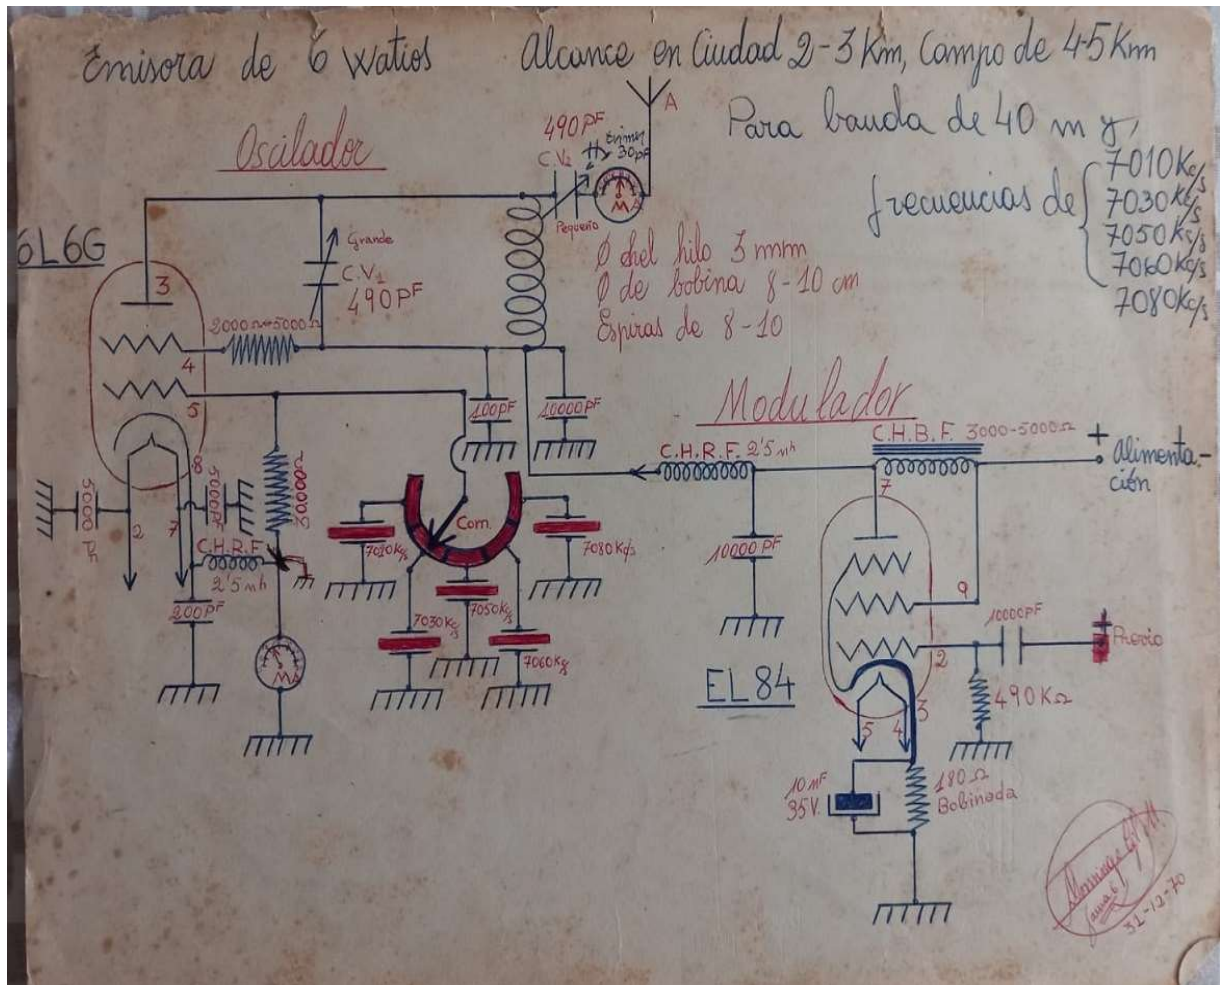 Emisora de 6 Watios
Alcance en Ciudad 2-3 Km, Campo de 4-5 Km
Para banda de 40 m y,
frecuencias de
7010 Kc/s
7030 Kc/s
7050 Kc/s
7060 Kc/s
7080 Kc/s
Oscilador
490 PF
C.V₂
30 PF
A
MA
Pequeño
6L6G
3
Grande
C.V₁
490 PF
Ø del hilo 3 mm
Ø de bobina 8-10 cm
Espiras de 8-10
2000Ω-5000Ω
4
5
100 PF
10000 PF
8
5000 pf
2
7
5000 PF
30000Ω
C.H.R.F.
2'5 mh
200 PF
MA
Com.
7010 Kc/s
7030 Kc/s
7050 Kc/s
7060 Kc/s
7080 Kc/s
Modulador
C.H.R.F. 2'5 mh
C.H.B.F. 3000-5000Ω
+
Alimenta-
ción
7
10000 PF
9
10000 PF
+
Previo
2
EL84
490 KΩ
3
5
4
10 mF
35 V.
180 Ω
Bobinada
31-12-70